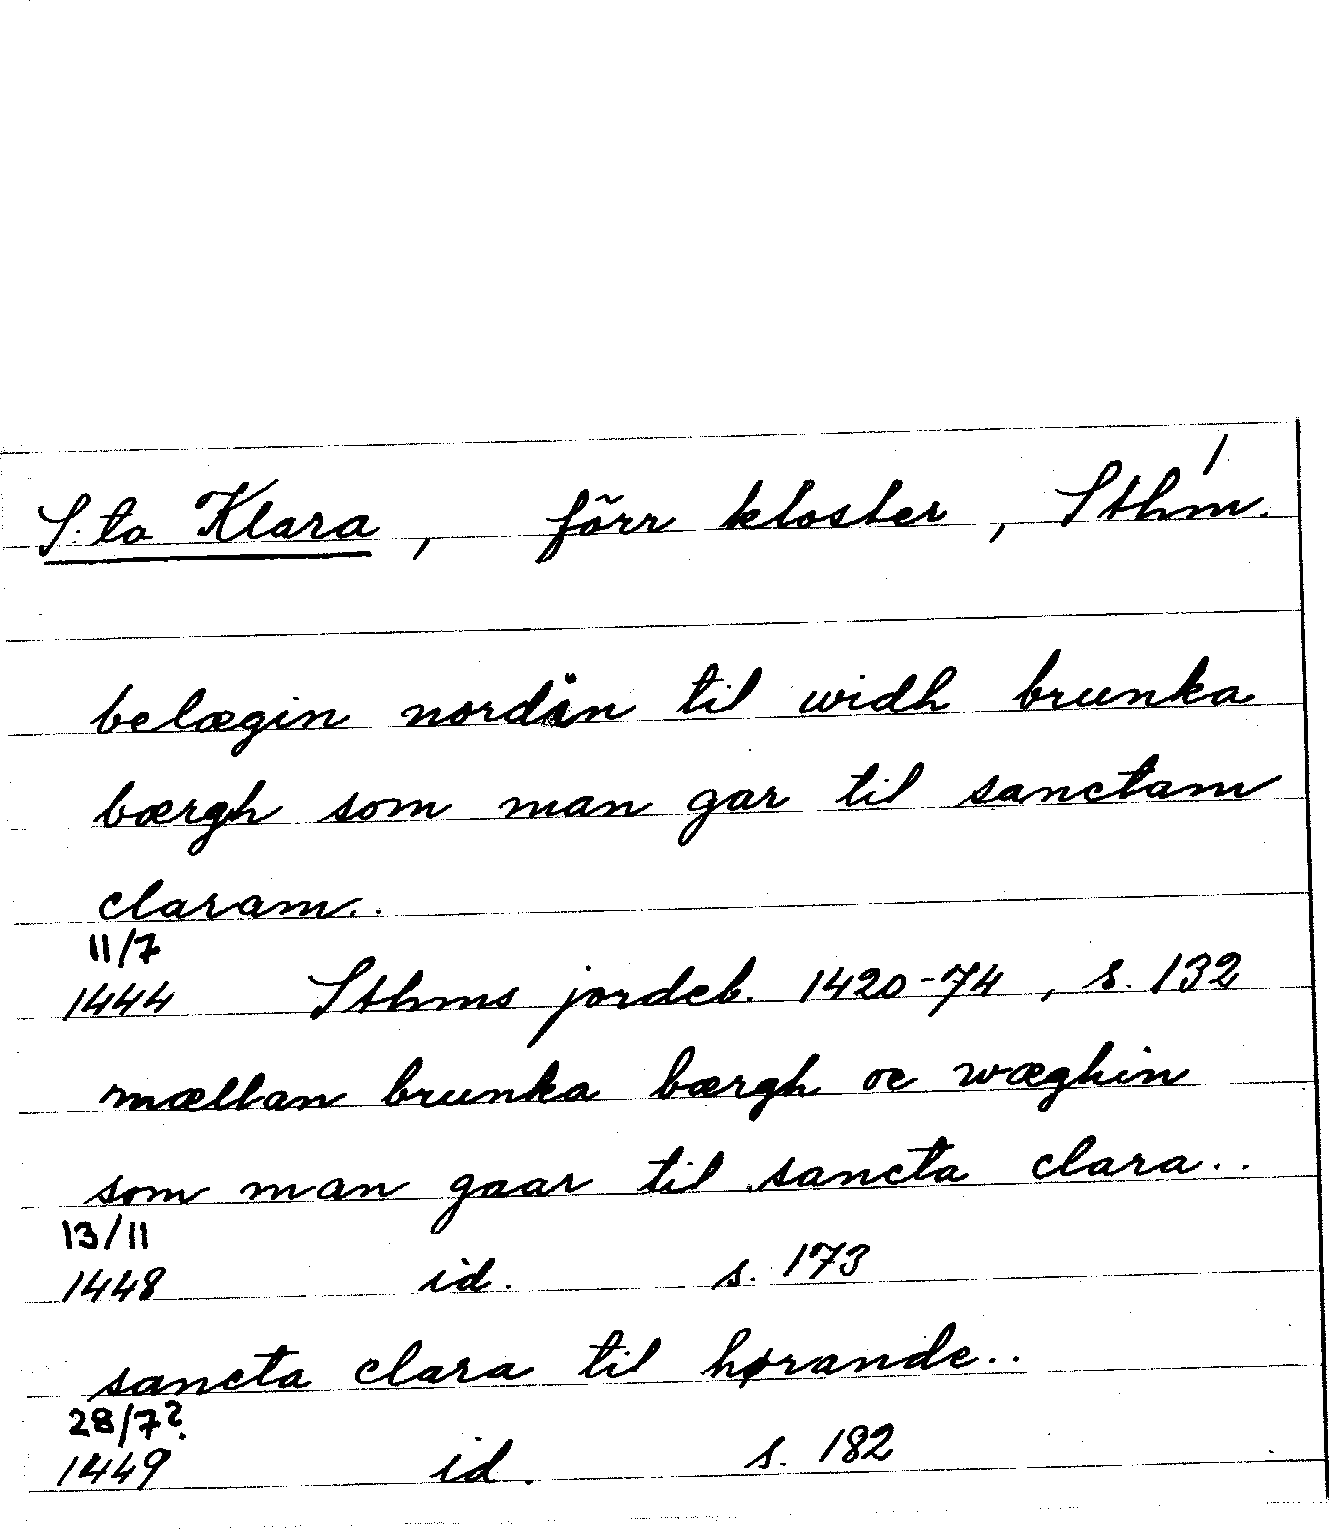 1
S:ta Klara, förr kloster, Sthm.
belægin nordän til widh brunka
bærgh som man gar til sanctam
claram..
11/7
1444 Sthms jordeb. 1420-74, s. 132
mællan brunka bærgh oc wæghin
som man gaar til sancta clara..
13/11
1448 id. s. 173
sancta clara til hørande..
28/7?
1449 id. s. 182